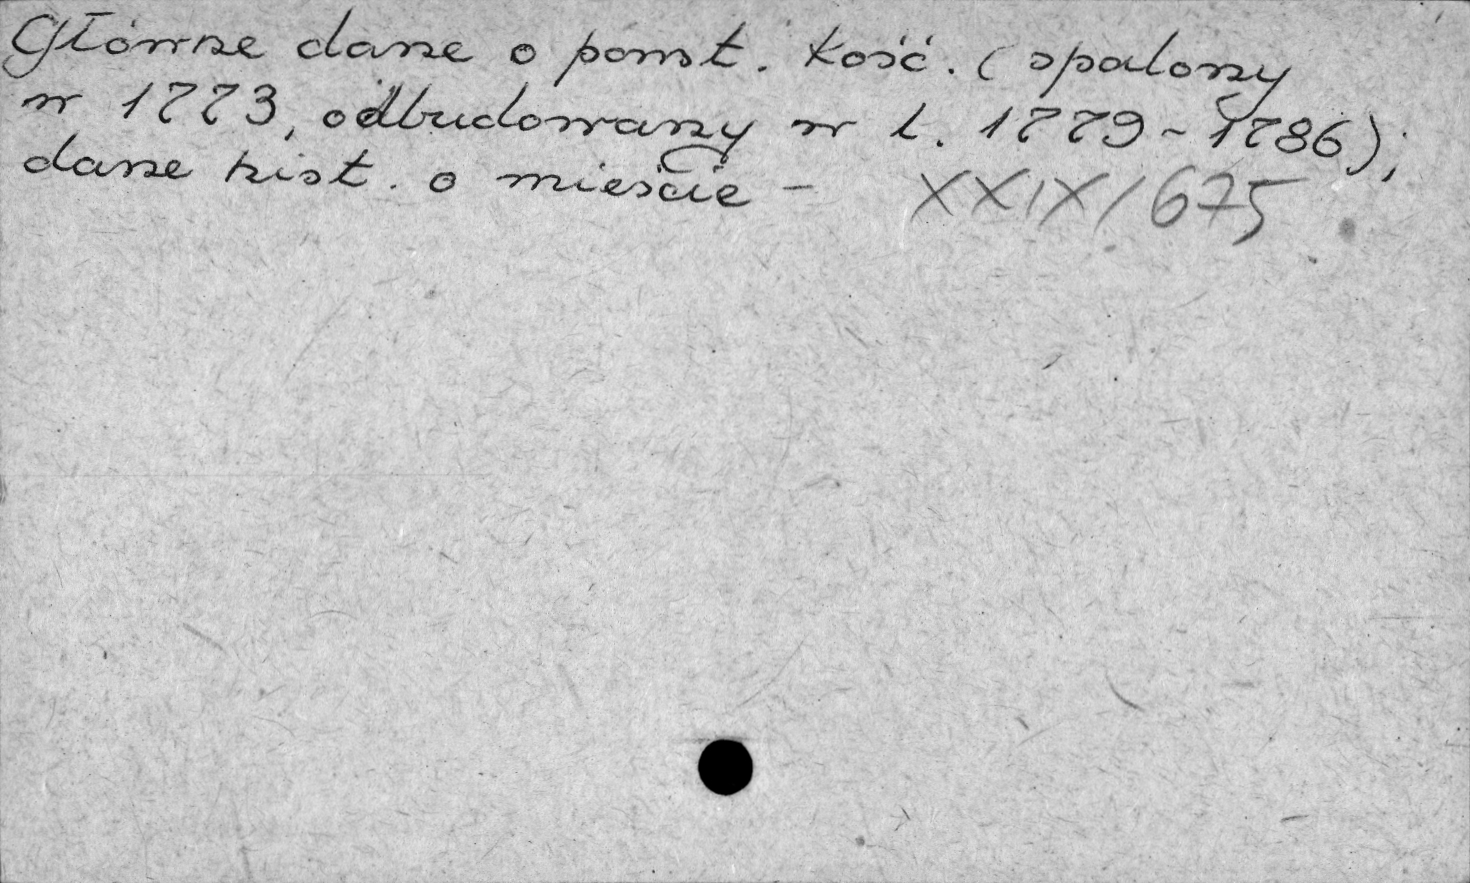 Główne dane o powst. kość. (spalony
w 1773, odbudowany w l. 1779-1786);
dane hist. o mieście - XXIX/675